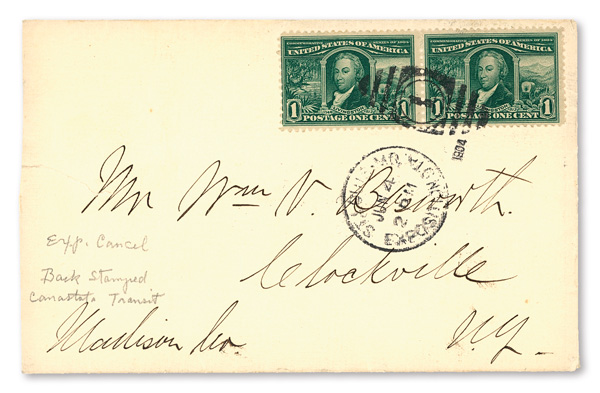 COMMEMORATIVE SERIES OF 1904 COMMEMORATIVE SERIES OF 1904
UNITED STATES OF AMERICA UNITED STATES OF AMERICA
1 1 1 1
POSTAGE ONE CENT POSTAGE ONE CENT
1904
ST. LOUIS, MO.
JUN 4
2 PM
EXPOSITION
Mr Wm V. Bosworth.
Exp. Cancel
Clockville
Back Stamped
Canastota Transit
Madison Co.
N.Y.